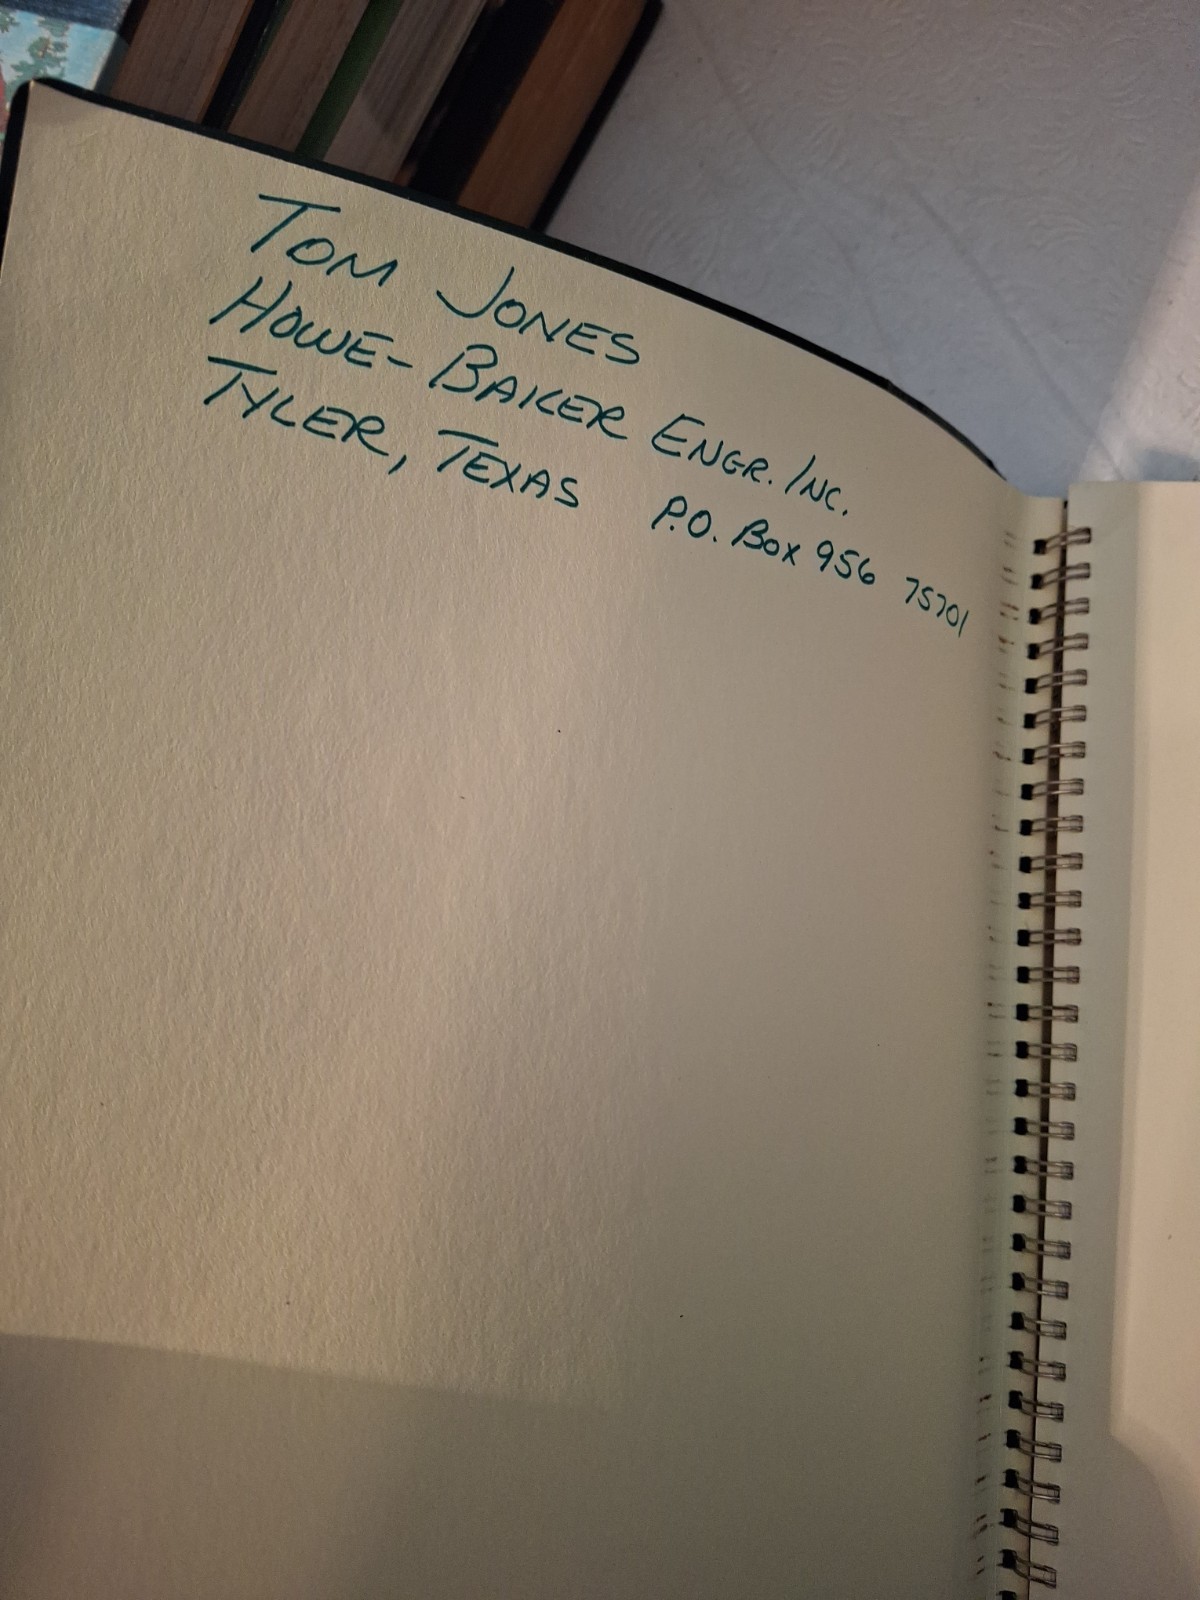 TOM JONES
HOWE-BAKER ENGR. INC.
TYLER, TEXAS P.O. BOX 956 75701